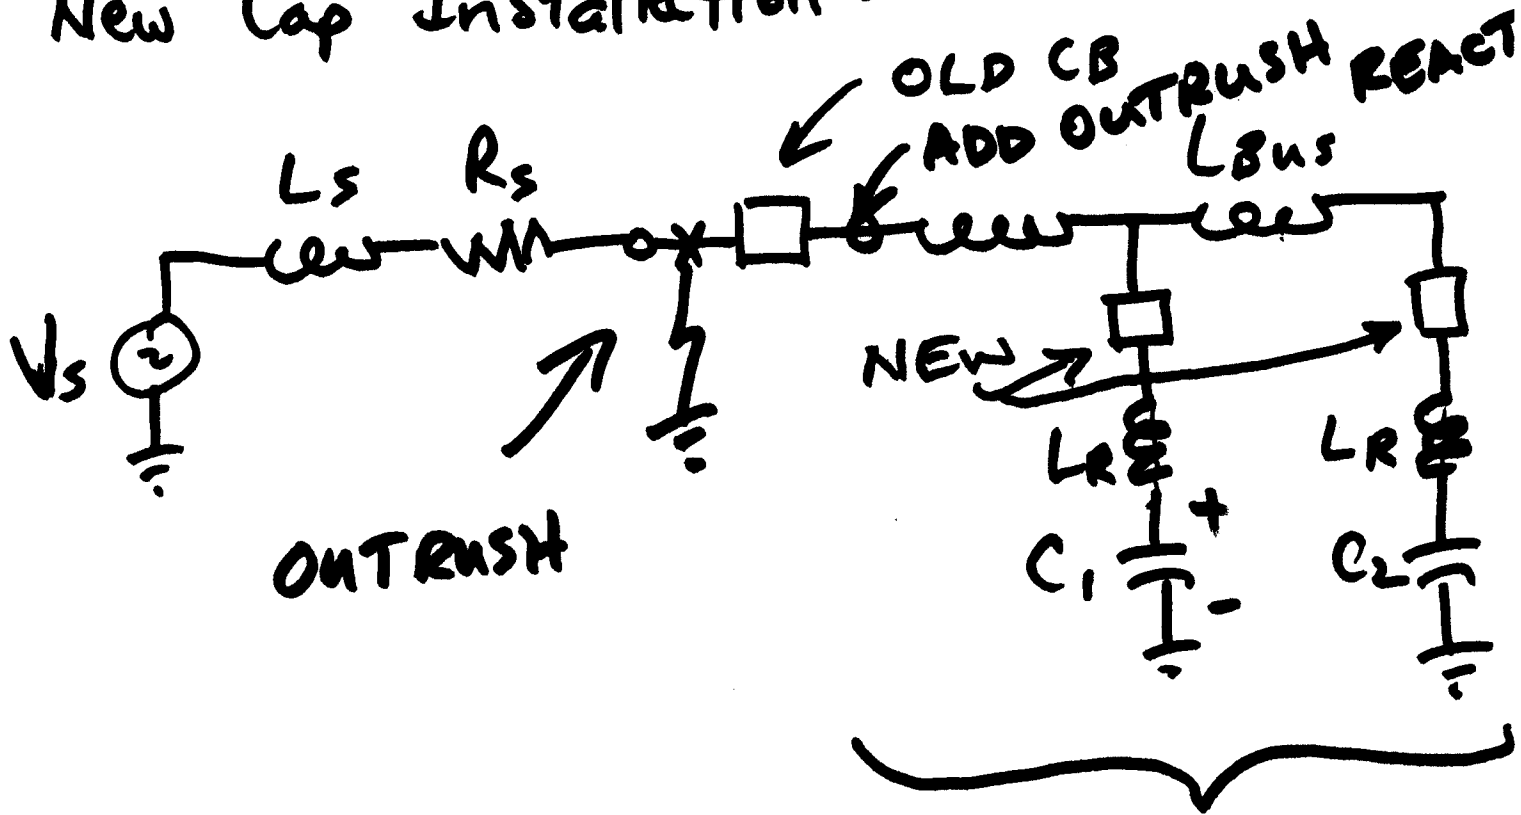 New Cap Installation
OLD CB
ADD OUTRUSH REACT
Ls
Rs
LBus
Vs
NEW
LR
LR
OUTRUSH
+
C1
-
C2